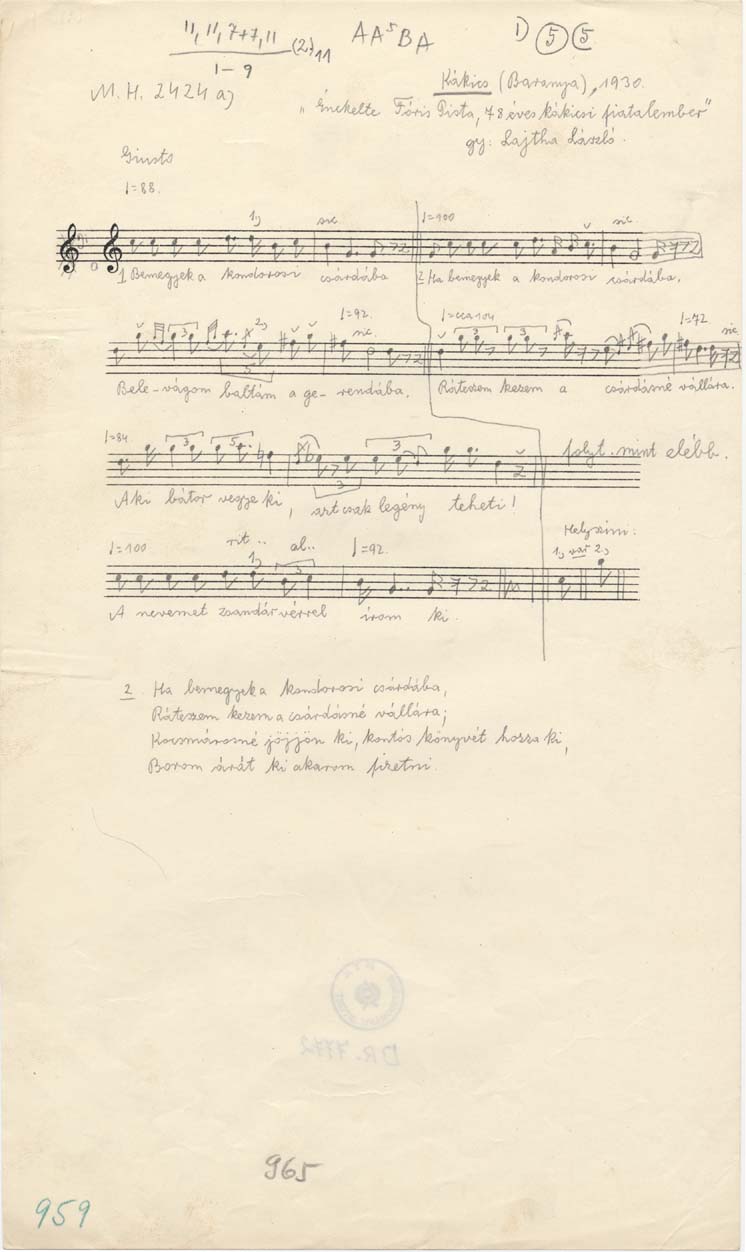 11, 11, 7+7, 11 (2.) 11 AA⁵BA 1) 5 5
1–9
M. H. 2424 a) Kákics (Baranya), 1930.
„Énekelte Fóris Pista, 78 éves kákicsi fiatalember"
gy: Lajtha László.
Giusto
=88.
1, sic =100 sic.
1 Bemegyek a kondorosi csárdába 2 Ha bemegyek a kondorosi csárdába,
3 2, =92. sic =cca 104 3 3 =72. sic
5
Bele-vágom baltám a ge-rendába. Ráteszem kezem a csárdásné vállára.
=84 3 5 3 folyt. mint elébb.
3
Aki bátor vegye ki, azt csak legény teheti!
Helyszíni:
=100 rit.. al.. =92. 1, var 2,
1, 3
A nevemet zsandár vérrel írom ki.
2. Ha bemegyek a kondorosi csárdába,
Ráteszem kezem a csárdásné vállára;
Kocsmárosné jöjjön ki, kontós könyvét hozza ki,
Borom árát ki akarom fizetni.
DR. 7772
965
959